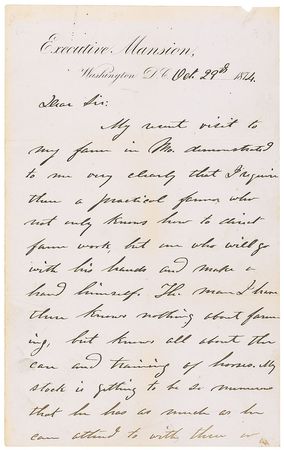 Executive Mansion,
Washington D.C. Oct. 29th 1874.
Dear Sir:
My recent visit to
my farm in Mo. demonstrated
to me very clearly that I require
there a practical farmer who
not only knows how to direct
farm work, but one who will go
with his hands and make a
hand himself. The man I have
there knows nothing about farm-
ing, but knows all about the
care and training of horses. My
stock is getting to be so numerous
that he has as much as he
can attend to with them or